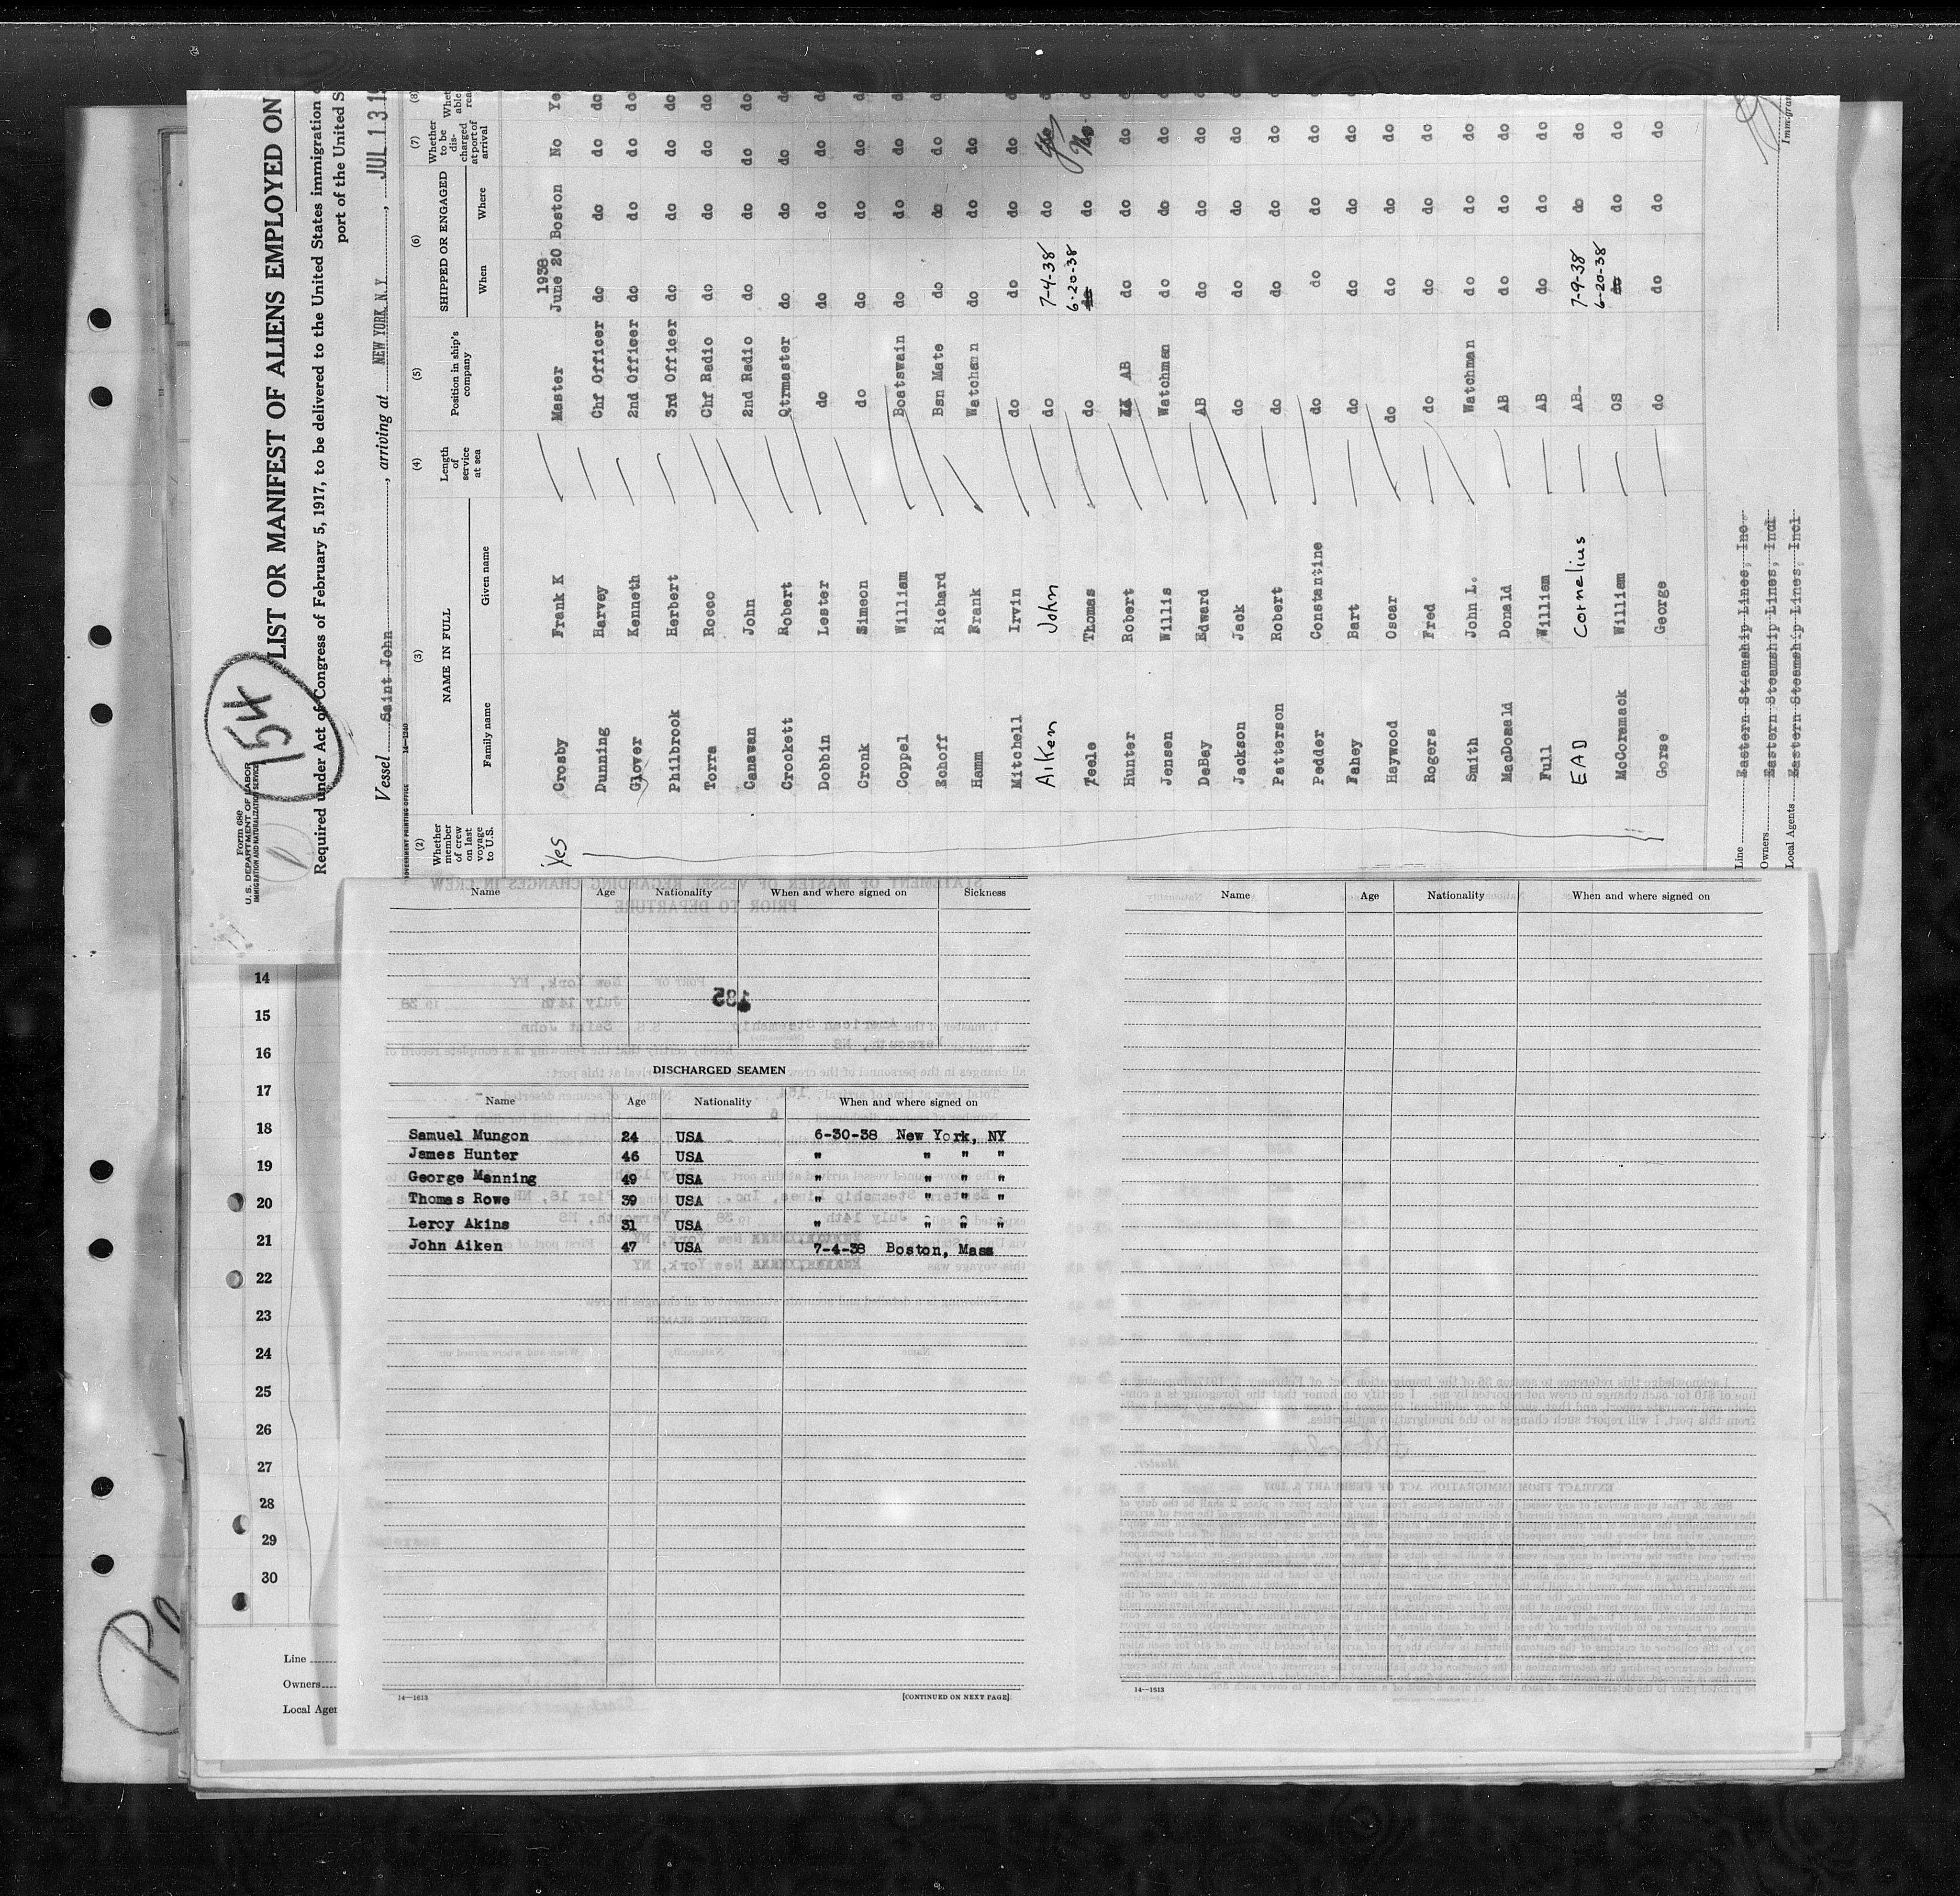 Form 680
U. S. DEPARTMENT OF LABOR
IMMIGRATION AND NATURALIZATION SERVICE
154
LIST OR MANIFEST OF ALIENS EMPLOYED ON
Required under Act of Congress of February 5, 1917, to be delivered to the United States immigration
port of the United S
Vessel Saint John, arriving at NEW YORK N.Y., JUL 13 19
GOVERNMENT PRINTING OFFICE 14—1240
(2) (3) (4) (5) (6) (7) (8)
Whether member of crew on last voyage to U.S. NAME IN FULL Length of service at sea Position in ship's company SHIPPED OR ENGAGED Whether to be discharged at port of arrival
Family name Given name When Where
1938
Yes Crosby Frank K Master June 20 Boston No Ye
Dunning Harvey Chf Officer do do do do
Glover Kenneth 2nd Officer do do do do
Philbrook Herbert 3rd Officer do do do do
Torra Rocco Chf Radio do do do do
Canavan John 2nd Radio do do do do
Crockett Robert Qtrmaster do do do do
Dobbin Lester do do do do d
Cronk Simeon do do do do d
Coppel William Boatswain do do do d
Echoff Richard Bsn Mate do do do d
Hamm Frank Watchman do do do d
Mitchell Irvin do do do do d
Aiken John do 7-4-38 do
Teele Thomas do 6-20-38 do do No
Hunter Robert AB do do do
Jensen Willis Watchman do do do
DeBey Edward AB do do do
Jackson Jack do do do do
Patterson Robert do do do do
Pedder Constantine do do do do
Fahey Bart do do do do
Haywood Oscar do do do do
Rogers Fred do do do do
Smith John L. Watchman do do do
MacDonald Donald AB do do do
Full William AB do do do
EAD Cornelius AB 7-9-38 do do
McCoramack William OS 6-20-38 do do do
Gorse George do do do do
Line Eastern Steamship Lines, Inc
Owners Eastern Steamship Lines, Incl
Local Agents Eastern Steamship Lines, Incl
Immigran
Name Age Nationality When and where signed on Sickness
185
DISCHARGED SEAMEN
Name Age Nationality When and where signed on
Samuel Mungon 24 USA 6-30-38 New York, NY
James Hunter 46 USA " " " "
George Manning 49 USA " " " "
Thomas Rowe 39 USA " " " "
Leroy Akins 31 USA " " " "
John Aiken 47 USA 7-4-38 Boston, Mass
14—1613
[CONTINUED ON NEXT PAGE]
Name Age Nationality When and where signed on
14—1513
14
15
16
17
18
19
20
21
22
23
24
25
26
27
28
29
30
Line
Owners
Local Agen